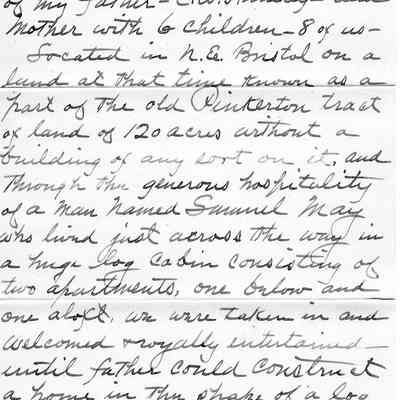 of my father - 
mother with 6 children - 8 of us -
Located in N.E. Bristol on a
land at that time known as a
part of the old Pinkerton tract
of land of 120 acres without a
building of any sort on it, and
through the generous hospitality
of a man named Samuel May
who lived just across the way in
a huge log cabin consisting of
two apartments, one below and
one aloft, we were taken in and
welcomed & royally entertained -
until father could construct
a home in the shape of a log